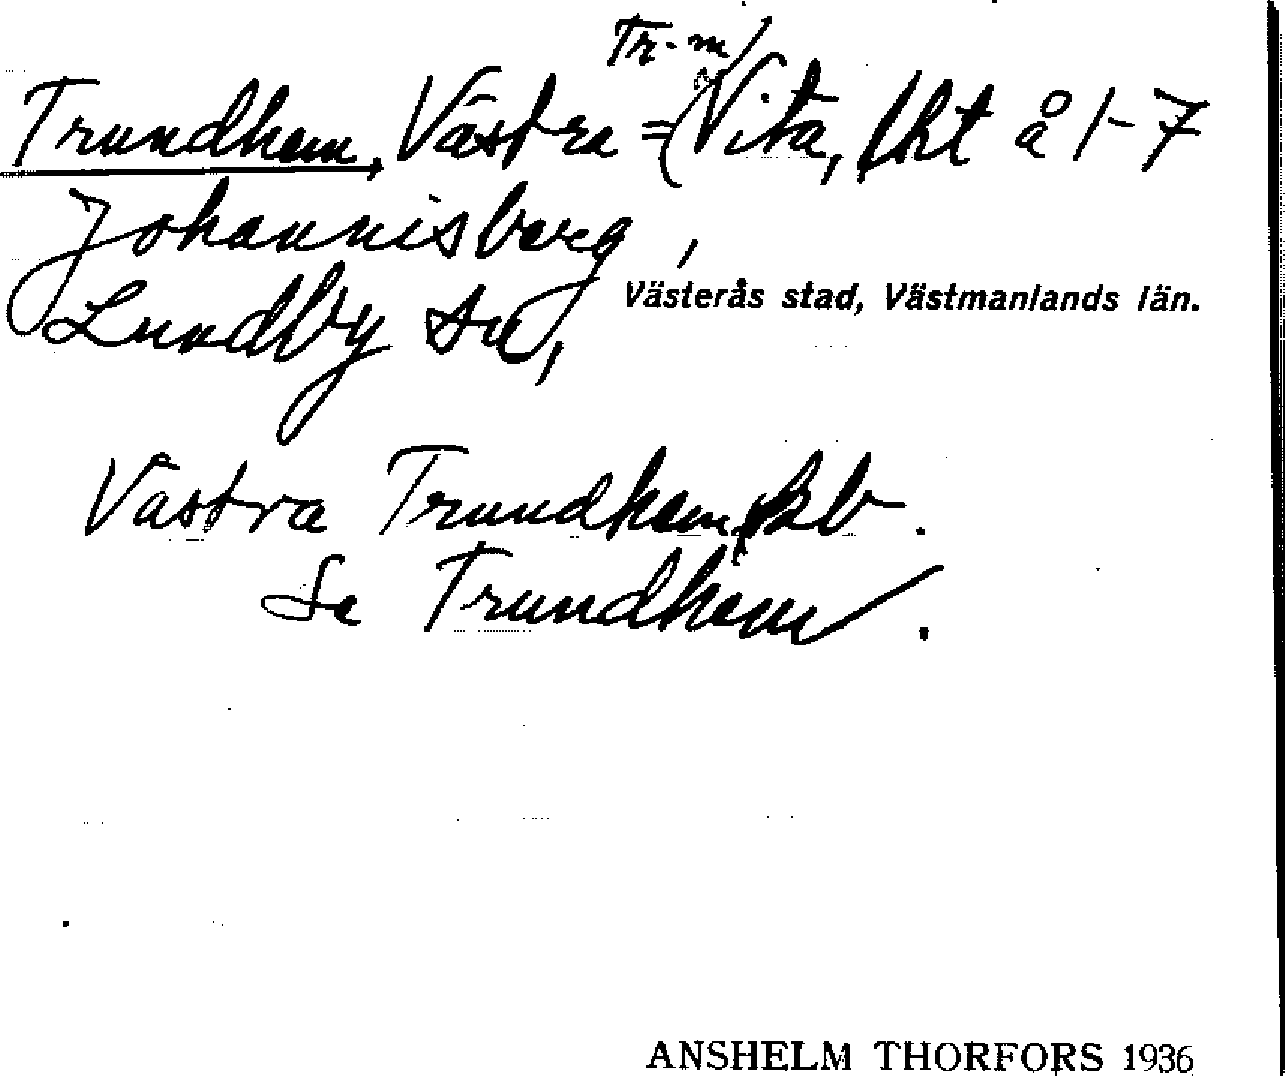 Tr-m/
Trundhem, Västra = (Vita, lht å 1-7
Johannisberg,
Lundby sn, Västerås stad, Västmanlands län.
Västra Trundhem, kb.
Se Trundhem.
ANSHELM THORFORS 1936